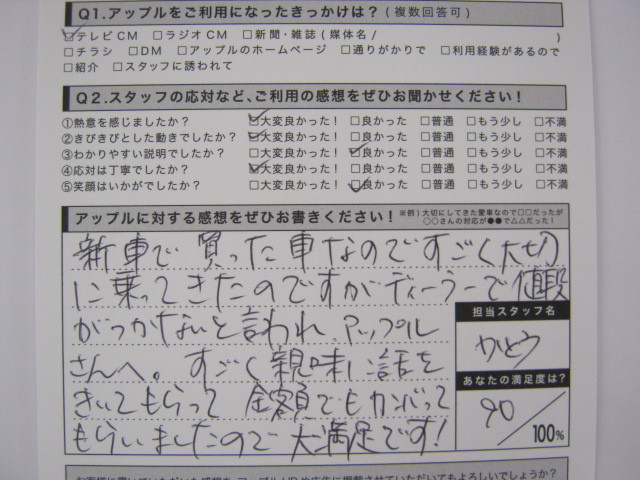 Q1.アップルをご利用になったきっかけは？(複数回答可)
□テレビCM □ラジオCM □新聞・雑誌(媒体名/ )
□チラシ □DM □アップルのホームページ □通りがかりで □利用経験があるので
□紹介 □スタッフに誘われて
Q2.スタッフの応対など、ご利用の感想をぜひお聞かせください！
①熱意を感じましたか？ □大変良かった！ □良かった □普通 □もう少し □不満
②きびきびとした動きでしたか？ □大変良かった！ □良かった □普通 □もう少し □不満
③わかりやすい説明でしたか？ □大変良かった！ □良かった □普通 □もう少し □不満
④応対は丁寧でしたか？ □大変良かった！ □良かった □普通 □もう少し □不満
⑤笑顔はいかがでしたか？ □大変良かった！ □良かった □普通 □もう少し □不満
アップルに対する感想をぜひお書きください！ ※例)大切にしてきた愛車なので□□だったが
○○さんの対応が●●で△△だった！
新車で買った車なのですごく大切
に乗ってきたのですがディーラーで値段
がつかないと言われ、アップル
さんへ。すごく親味に話を
きいてもらって金額でもガンバって
もらいましたので大満足です！
担当スタッフ名
かとう
あなたの満足度は？
90/100%
お客様に書いていただいた感想を、アップルHPや広告に掲載させていただいてもよろしいでしょうか？